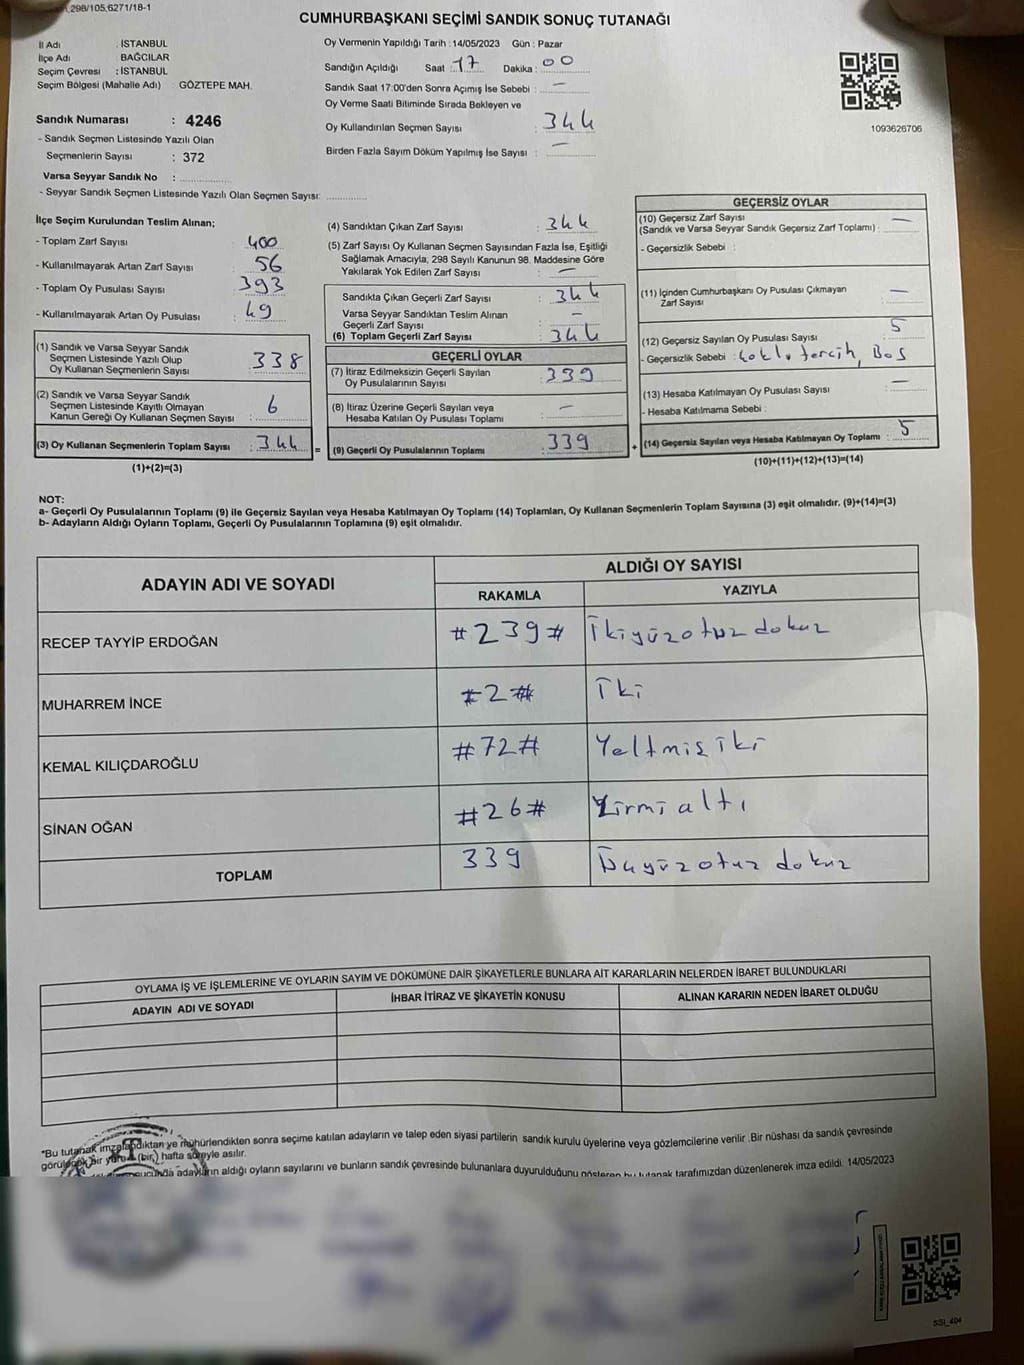 298/105,6271/18-1
CUMHURBAŞKANI SEÇİMİ SANDIK SONUÇ TUTANAĞI
İl Adı : İSTANBUL
İlçe Adı : BAĞCILAR
Seçim Çevresi : İSTANBUL
Seçim Bölgesi (Mahalle Adı) : GÖZTEPE MAH.
Sandık Numarası : 4246
- Sandık Seçmen Listesinde Yazılı Olan
Seçmenlerin Sayısı : 372
Varsa Seyyar Sandık No :
- Seyyar Sandık Seçmen Listesinde Yazılı Olan Seçmen Sayısı:
Oy Vermenin Yapıldığı Tarih : 14/05/2023 Gün : Pazar
Sandığın Açıldığı Saat : 17 Dakika : 00
Sandık Saat 17:00'den Sonra Açımış İse Sebebi : —
Oy Verme Saati Bitiminde Sırada Bekleyen ve
Oy Kullandırılan Seçmen Sayısı : 344
Birden Fazla Sayım Döküm Yapılmış İse Sayısı : —
1093626706
İlçe Seçim Kurulundan Teslim Alınan;
- Toplam Zarf Sayısı : 400
- Kullanılmayarak Artan Zarf Sayısı : 56
- Toplam Oy Pusulası Sayısı : 393
- Kullanılmayarak Artan Oy Pusulası : 49
(1) Sandık ve Varsa Seyyar Sandık
Seçmen Listesinde Yazılı Olup
Oy Kullanan Seçmenlerin Sayısı : 338
(2) Sandık ve Varsa Seyyar Sandık
Seçmen Listesinde Kayıtlı Olmayan
Kanun Gereği Oy Kullanan Seçmen Sayısı : 6
(3) Oy Kullanan Seçmenlerin Toplam Sayısı : 344 =
(1)+(2)=(3)
(4) Sandıktan Çıkan Zarf Sayısı : 344
(5) Zarf Sayısı Oy Kullanan Seçmen Sayısından Fazla İse, Eşitliği
Sağlamak Amacıyla, 298 Sayılı Kanunun 98. Maddesine Göre
Yakılarak Yok Edilen Zarf Sayısı : —
Sandıkta Çıkan Geçerli Zarf Sayısı : 344
Varsa Seyyar Sandıktan Teslim Alınan
Geçerli Zarf Sayısı : —
(6) Toplam Geçerli Zarf Sayısı : 344
GEÇERLİ OYLAR
(7) İtiraz Edilmeksizin Geçerli Sayılan
Oy Pusulalarının Sayısı : 339
(8) İtiraz Üzerine Geçerli Sayılan veya
Hesaba Katılan Oy Pusulası Toplamı : —
(9) Geçerli Oy Pusulalarının Toplamı : 339 +
GEÇERSİZ OYLAR
(10) Geçersiz Zarf Sayısı
(Sandık ve Varsa Seyyar Sandık Geçersiz Zarf Toplamı) : —
- Geçersizlik Sebebi :
(11) İçinden Cumhurbaşkanı Oy Pusulası Çıkmayan
Zarf Sayısı : —
(12) Geçersiz Sayılan Oy Pusulası Sayısı : 5
- Geçersizlik Sebebi : tercih, Boş
(13) Hesaba Katılmayan Oy Pusulası Sayısı : —
- Hesaba Katılmama Sebebi :
(14) Geçersiz Sayılan veya Hesaba Katılmayan Oy Toplamı : 5
(10)+(11)+(12)+(13)=(14)
NOT:
a- Geçerli Oy Pusulalarının Toplamı (9) ile Geçersiz Sayılan veya Hesaba Katılmayan Oy Toplamı (14) Toplamları, Oy Kullanan Seçmenlerin Toplam Sayısına (3) eşit olmalıdır. (9)+(14)=(3)
b- Adayların Aldığı Oyların Toplamı, Geçerli Oy Pusulalarının Toplamına (9) eşit olmalıdır.
ADAYIN ADI VE SOYADI ALDIĞI OY SAYISI
RAKAMLA YAZIYLA
RECEP TAYYİP ERDOĞAN #239# İkiyüzotuzdokuz
MUHARREM İNCE #2# İki
KEMAL KILIÇDAROĞLU #72# Yeltmiş iki
SİNAN OĞAN #26# Yirmi altı
TOPLAM 339 Üçyüzotuz dokuz
OYLAMA İŞ VE İŞLEMLERİNE VE OYLARIN SAYIM VE DÖKÜMÜNE DAİR ŞİKAYETLERLE BUNLARA AİT KARARLARIN NELERDEN İBARET BULUNDUKLARI
ADAYIN ADI VE SOYADI İHBAR İTİRAZ VE ŞİKAYETİN KONUSU ALINAN KARARIN NEDEN İBARET OLDUĞU
*Bu tutanak imzalandıktan ve mühürlendikten sonra seçime katılan adayların ve talep eden siyasi partilerin sandık kurulu üyelerine veya gözlemcilerine verilir .Bir nüshası da sandık çevresinde
görülecek bir yere (bir) hafta süreyle asılır.
adayların aldığı oyların sayılarını ve bunların sandık çevresinde bulunanlara duyurulduğunu gösteren bu tutanak tarafımızdan düzenlenerek imza edildi. 14/05/2023
SSİ_404